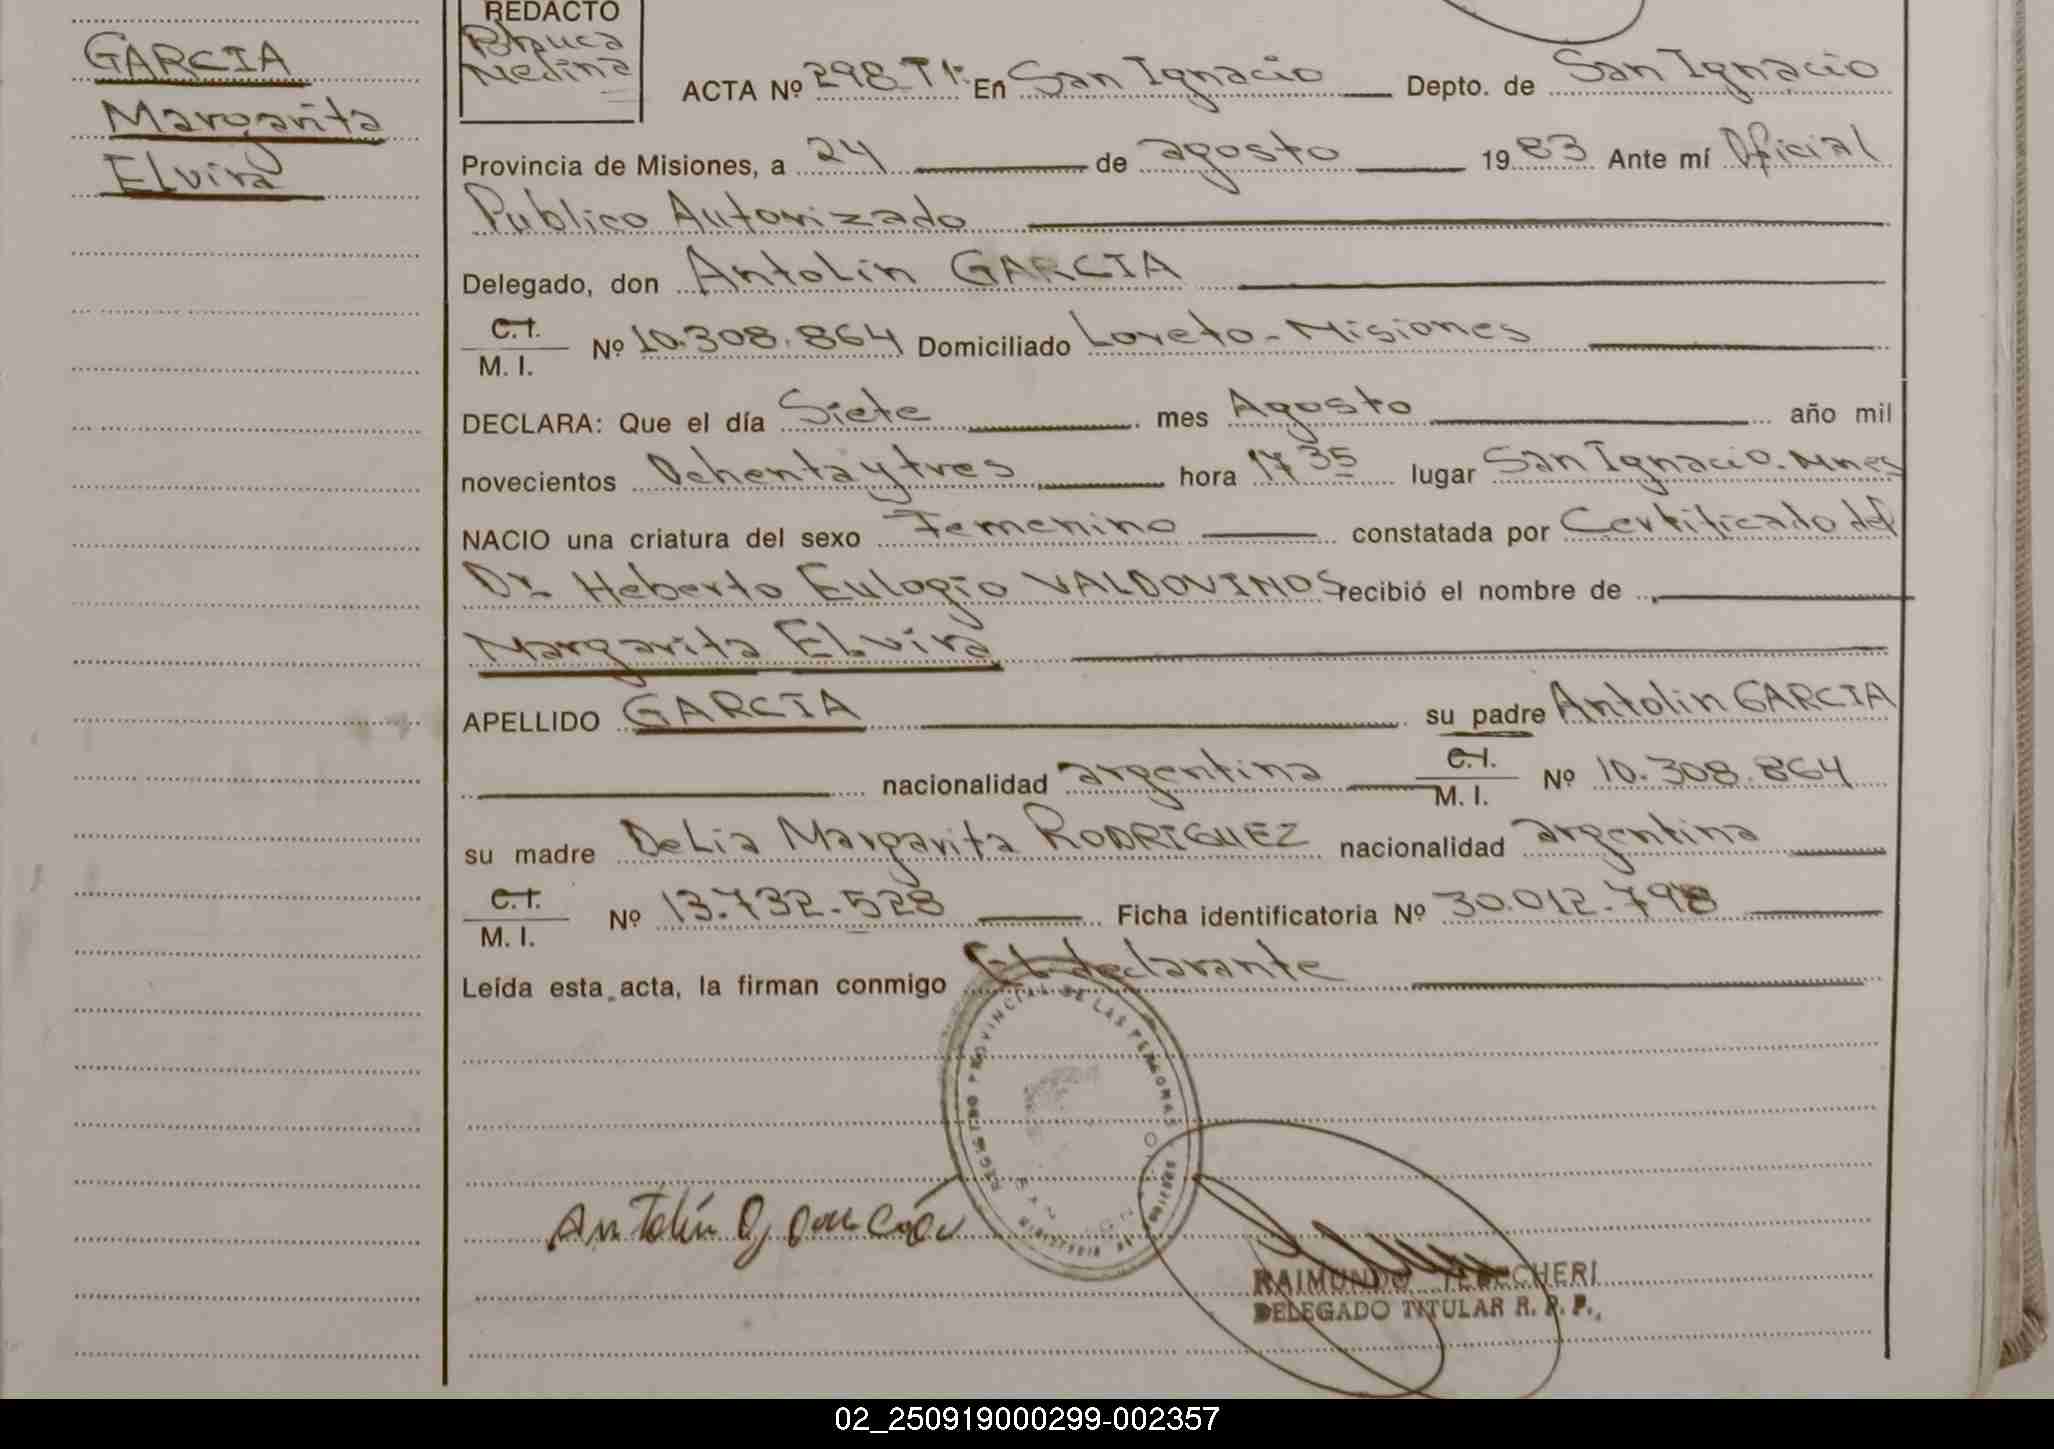 GARCIA
Margarita
Elvira
REDACTO
Medina
ACTA Nº 298 T1: En San Ignacio Depto. de San Ignacio
Provincia de Misiones, a 24 de agosto 1983 Ante mí Oficial
Publico Autorizado
Delegado, don Antolin GARCIA
C.I.
M. I. Nº 10.308.864 Domiciliado Loreto - Misiones
DECLARA: Que el día Siete mes Agosto año mil
novecientos Ochenta y tres hora 17 35 lugar San Ignacio. Mnes
NACIO una criatura del sexo Femenino constatada por Certificado del
Dr. Heberto Eulogio VALDOVINOS recibió el nombre de
Margarita Elvira
APELLIDO GARCIA su padre Antolin GARCIA
nacionalidad argentina C.I. M. I. Nº 10.308.864
su madre Delia Margarita RODRIGUEZ nacionalidad argentina
C.I.
M. I. Nº 13.732.528 Ficha identificatoria Nº 30.012.798
Leída esta acta, la firman conmigo El declarante
REGISTRO PROVINCIAL DE LAS PERSONAS
MINISTERIO DE
SAN IGN
Antolín
RAIMUNDO
DELEGADO TITULAR R. P. P.
02_250919000299-002357